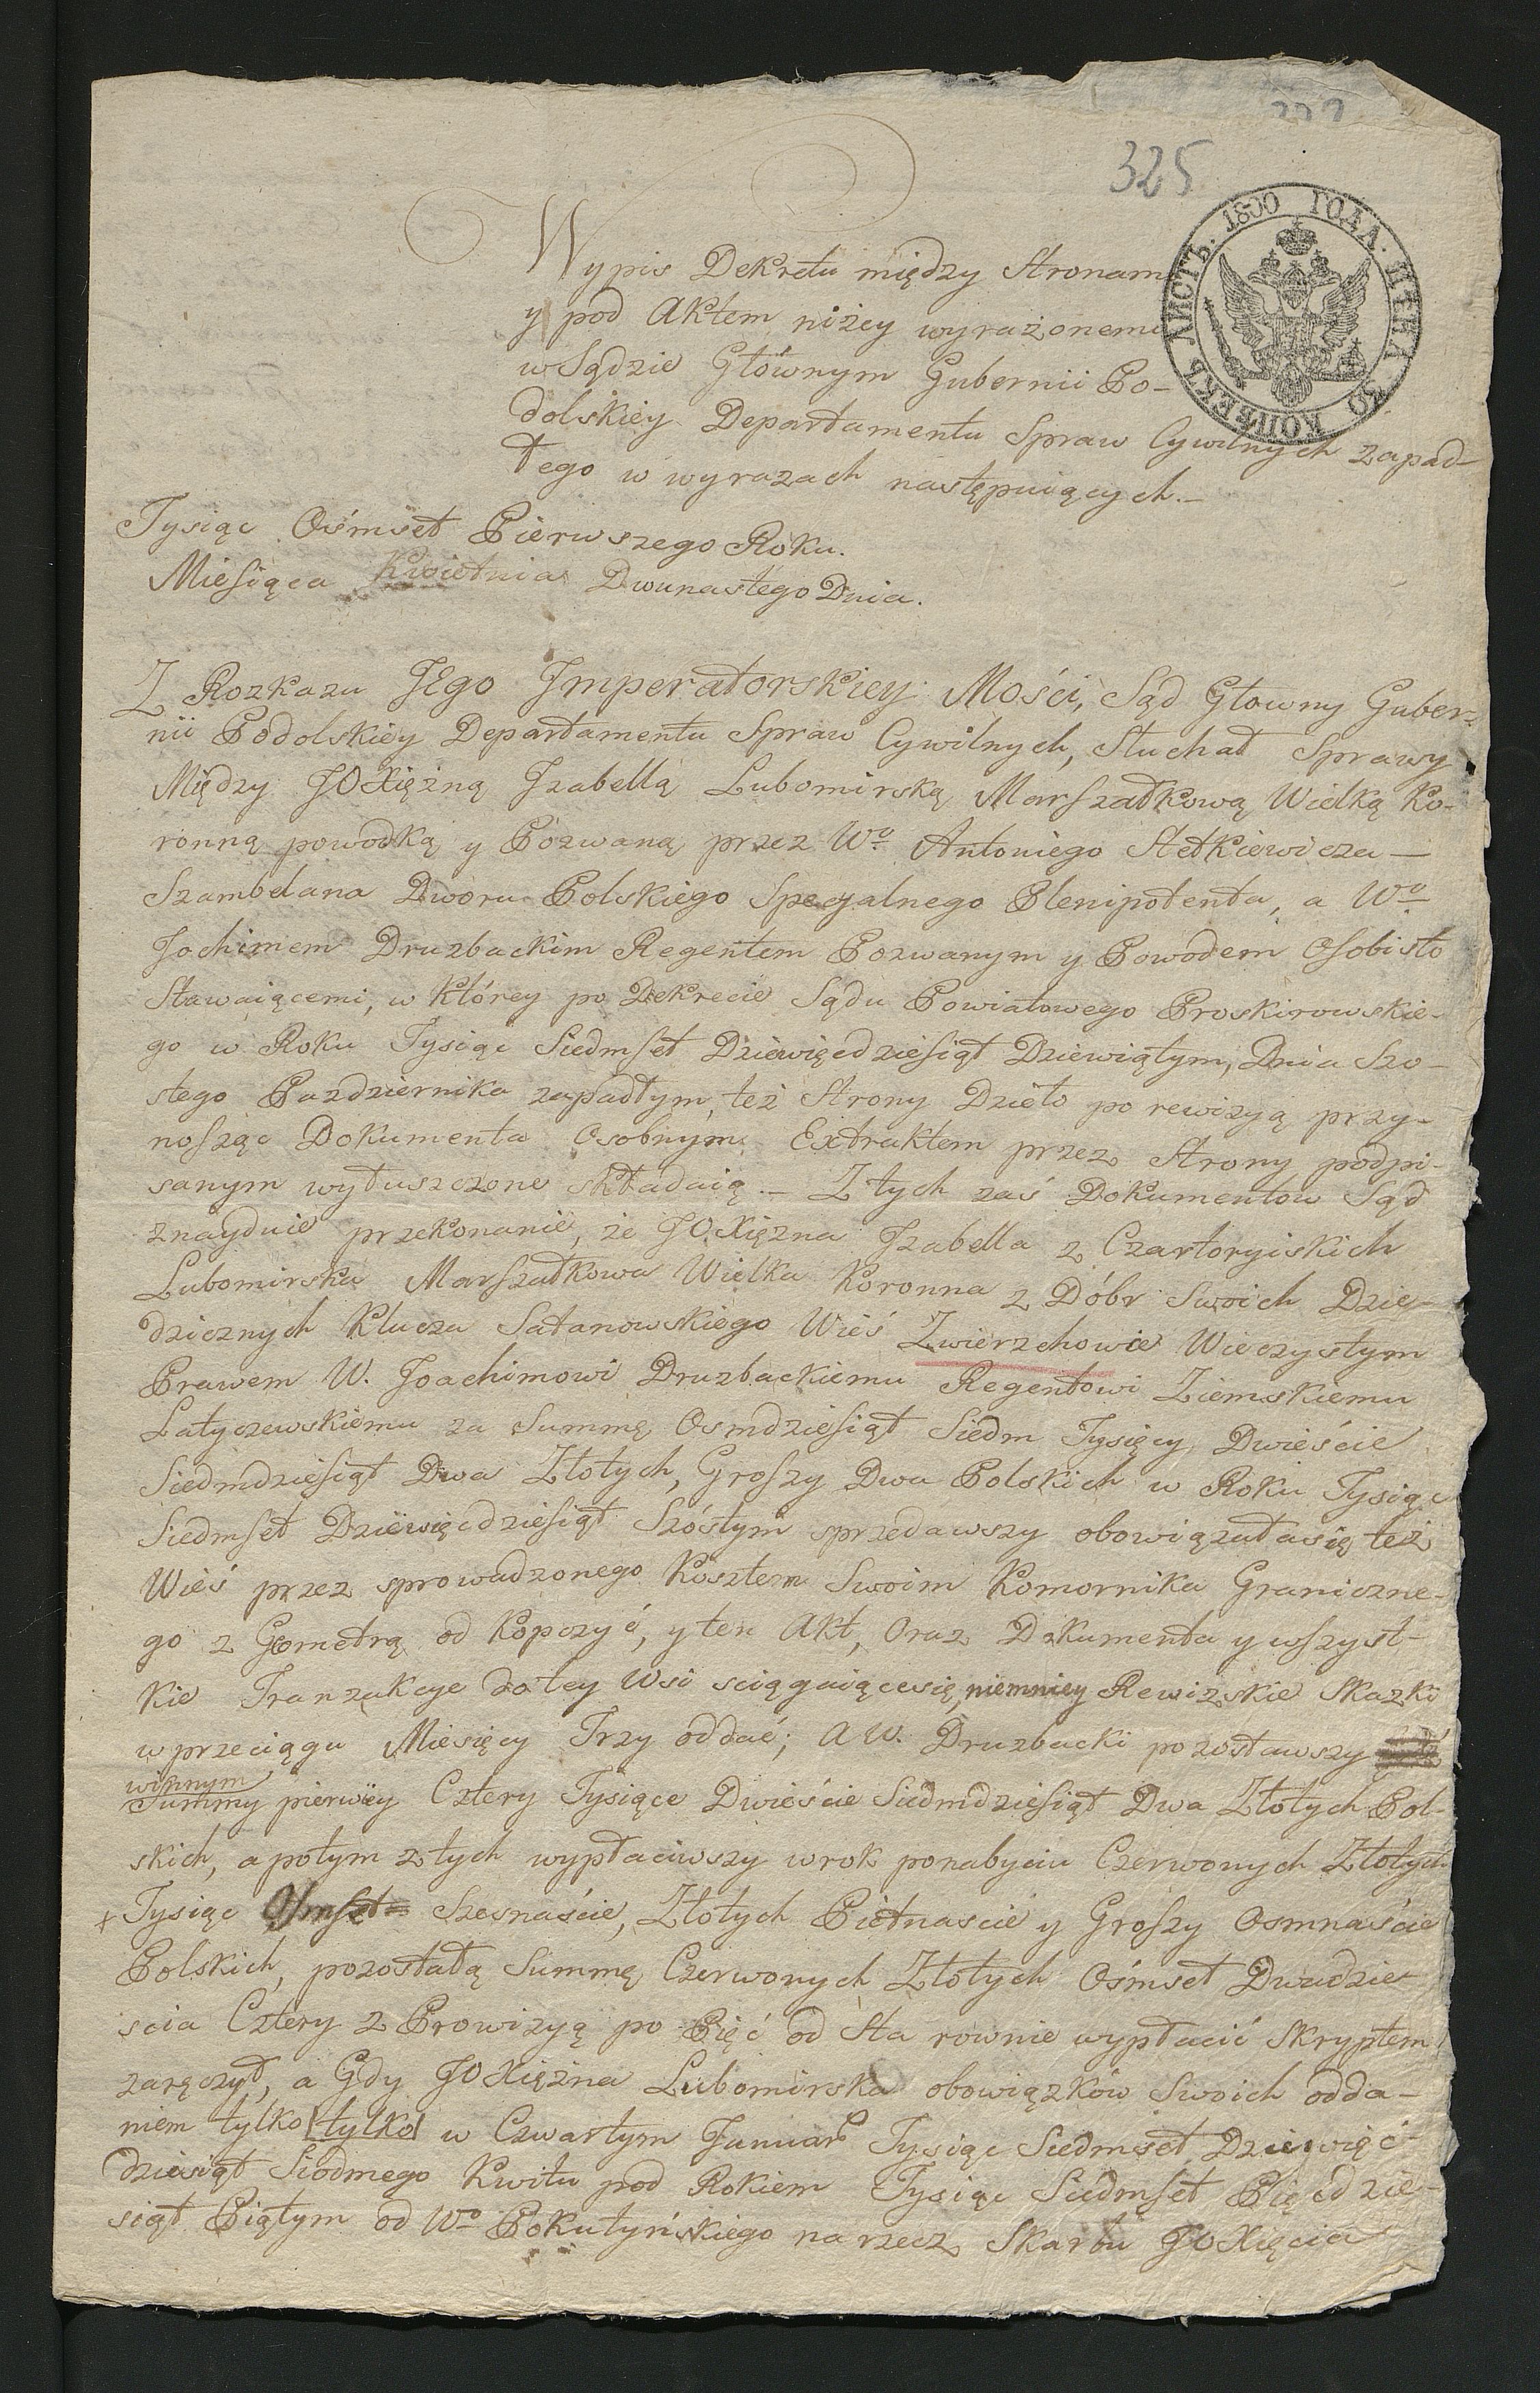 325
1800 ГОДА. ЦѢНА 30 КОПѢЕКЪ ЛИСТЪ.
Wypis Dekretu między Stronami
y pod Aktem niżey wyrażonemi
w Sądzie Głównym Gubernii Po-
dolskiey Departamentu Spraw Cywilnych zapad-
łego w wyrazach następuiących.-
Tysiąc Ośmset Pierwszego Roku.
Miesiąca Kwietnia Dwunastego Dnia.
Z Rozkazu JEgo Jmperatorskiey Mości, Sąd Głowny Guber-
nii Podolskiey Departamentu Spraw Cywilnych, Słuchał Sprawy
Między JOXiężną Jzabellą Lubomirską Marszałkową Wielką Ko-
ronną powodką y Pozwaną przez Wo Antoniego Stetkiewicza —
Szambelana Dworu Polskiego Specyalnego Plenipotenta, a Wo
Jochimem Druzbackim Regentem Pozwanym y Powodem Osobisto
Stawaiącemi, w którey po Dekrecie Sądu Powiatowego Proskirowskie-
go w Roku Tysiąc Siedmset Dziewięcdziesiąt Dziewiątym, Dnia Szo-
stego Pazdziernika zapadłym, też Strony Dzieło po rewizyą przy-
nosząc Dokumenta Osobnym Extraktem przez Strony podpi-
sanym wyłuszczone składaią.- Z tych zaś Dokumentow Sąd
znayduie przekonanie, że JOXiężna Jzabella z Czartoryiskich
Lubomirska Marszałkowa Wielka Koronna z Dóbr Swoich Dzie-
dzicznych Klucza Satanowskiego Wieś Zwierzchowie Wieczystym
Prawem W. Joachimowi Druzbackiemu Regentowi Ziemskiemu
Latyczewskiemu za Summę Osmdziesiąt Siedm Tysięcy Dwieście
Siedmdziesiąt Dwa Złotych, Groszy Dwa Polskich w Roku Tysiąc
Siedmset Dziewięcdziesiąt Szóstym sprzedawszy obowiązała się też
Wieś przez sprowadzonego Kosztem Swoim Komornika Graniczne-
go z Geometrą od Kopczyć, y ten Akt, Oraz Dokumenta y wszyst-
kie Tranzakcye do tey Wsi sciągaiące się, niemniey Rewizskie Skazki
w przeciągu Miesięcy Trzy oddać; a W. Druzbacki pozostawszy
winnym
Summy pierwiey Cztery Tysiące Dwieście Siedmdziesiąt Dwa Złotych Pol-
skich, a potym z tych wypłaciwszy w rok po nabyciu Czerwonych Złotych
+ Tysiąc Osmset Szesnaście, Złotych Piętnascie y Groszy Osmnaście
Polskich, pozostałą Summę Czerwonych Złotych Ośmset Dwadzie-
scia Cztery z Prowizyą po Pięć od Sta rownie wypłacić Skryptem
zaręczył, a Gdy JOXiężna Lubomirska obowiązków Swoich odda-
niem tylko [tylko] w Czwartym Januar Tysiąc Siedmset Dziewięć-
dziesiąt Siodmego Kwitu pod Rokiem Tysiąc Siedmset Pięcdzie-
siąt Piątym od Wo Pokutyńskiego na rzecz Skarbu JOXięcia